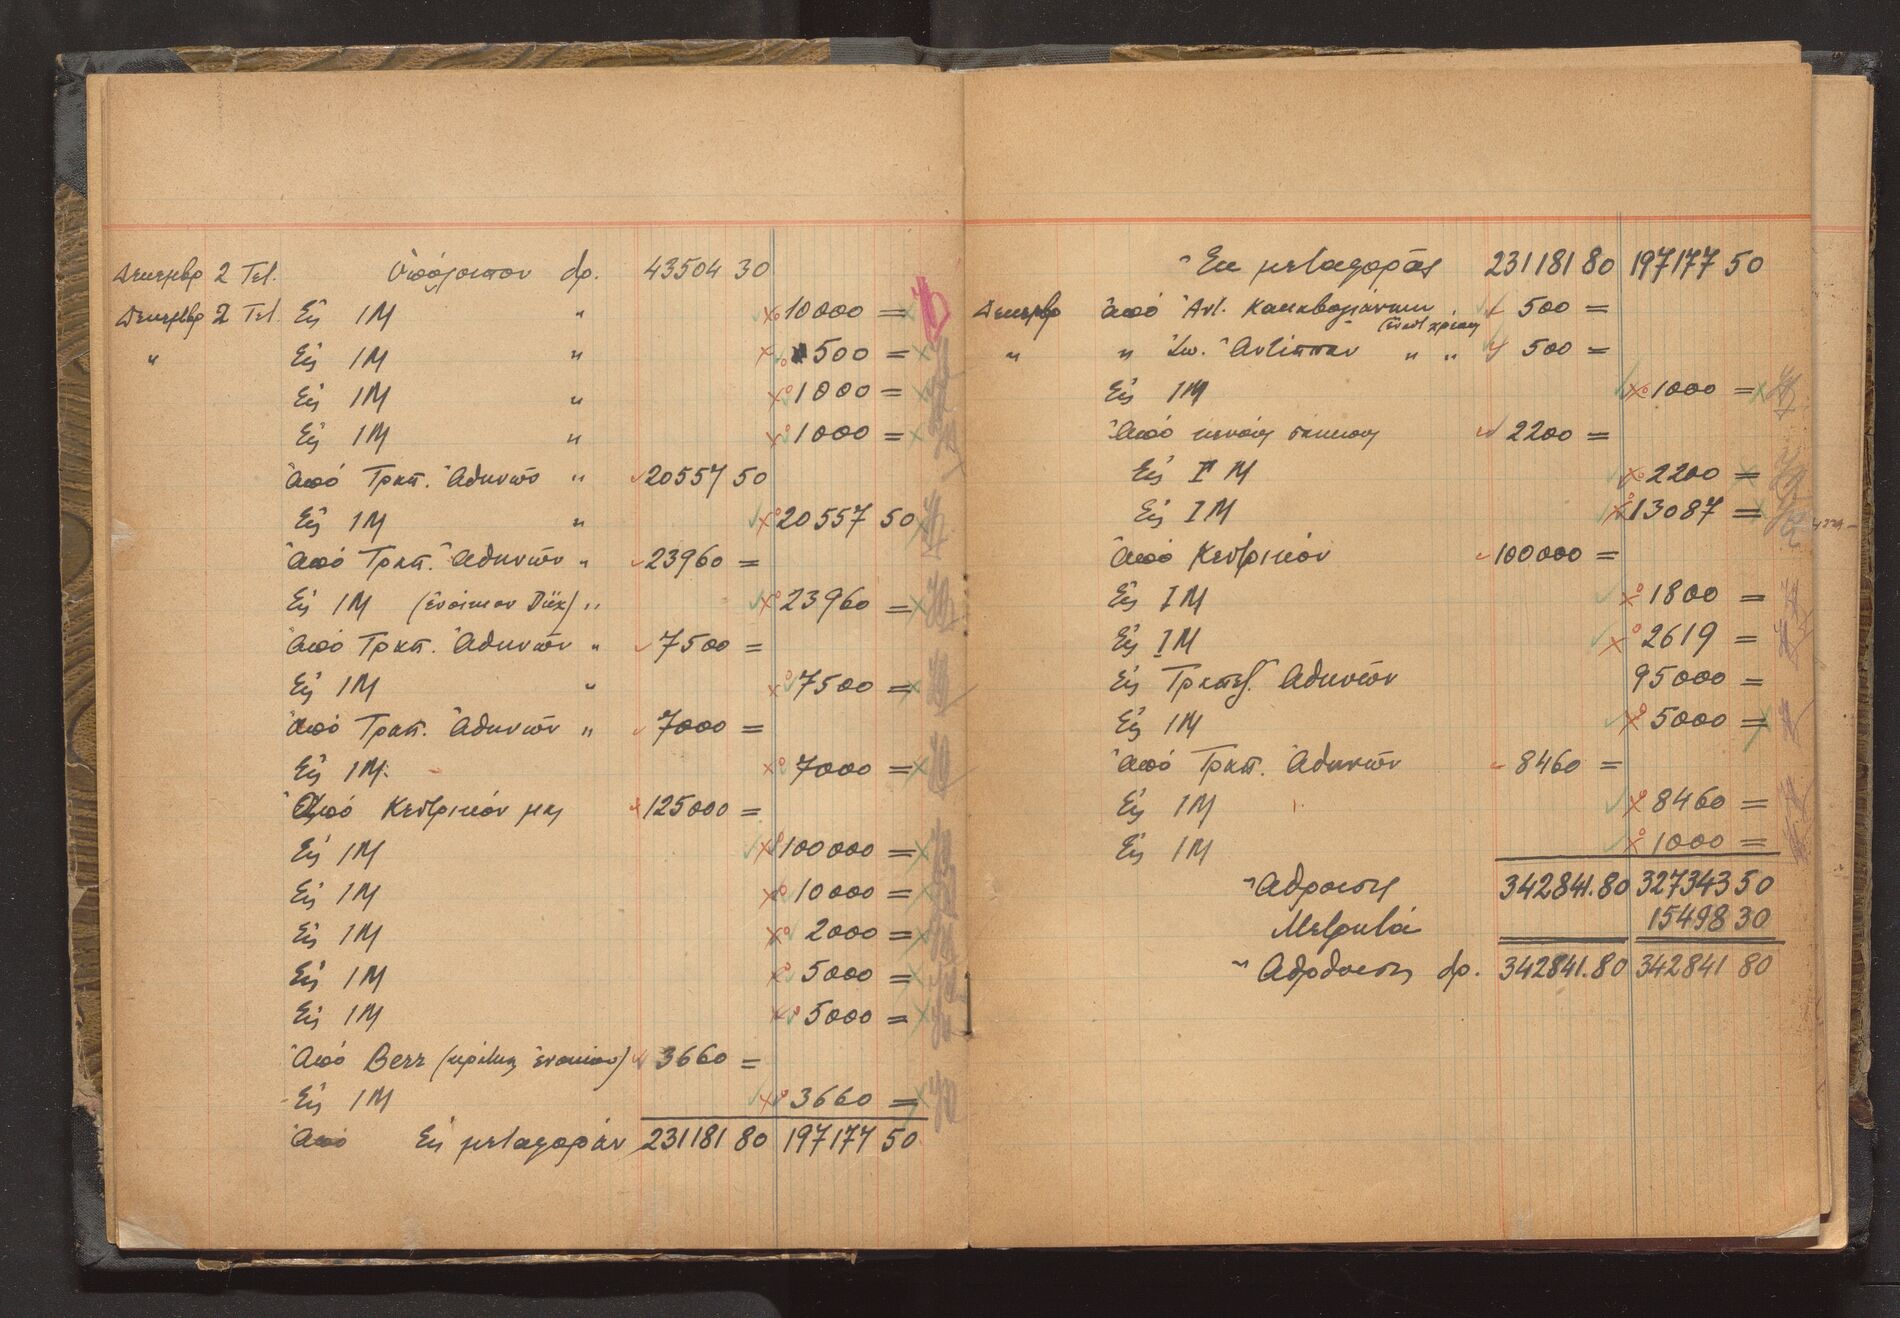 Δεκεμβρ 2 Τετ. Ὑπόλοιπον δρ. 43504 30
Δεκεμβρ 2 Τετ. Εἰς 1Μ " 10000 =
" Εἰς 1Μ " 500 =
Εἰς 1Μ " 1000 =
Εἰς 1Μ " 1000 =
Ἀπό Τραπ. Ἀθηνῶν " 20557 50
Εἰς 1Μ " 20557 50
Ἀπό Τραπ. Ἀθηνῶν " 23960 =
Εἰς 1Μ (ἐνοίκιον) " 23960 =
Ἀπό Τραπ. Ἀθηνῶν " 7500 =
Εἰς 1Μ " 7500 =
Ἀπό Τραπ. Ἀθηνῶν " 7000 =
Εἰς 1Μ. 7000 =
Ἀπό Κεντρικόν μας 125000 =
Εἰς 1Μ 100000 =
Εἰς 1Μ 10000 =
Εἰς 1Μ 2000 =
Εἰς 1Μ 5000 =
Εἰς 1Μ 5000 =
Ἀπό (ἐνοικίου) 3660 =
Εἰς 1Μ 3660 =
Ἀπό Εἰς μεταφοράν 231181 80 197177 50
Ἐκ μεταφορᾶς 231181 80 197177 50
Δεκεμβρ ἀπό Ἀντ. 500 =
" " " " 500 =
Εἰς 1Μ 1000 =
Ἀπό 2200 =
Εἰς Ι Μ 2200 =
Εἰς Ι Μ 13087 =
Ἀπό Κεντρικόν 100000 =
Εἰς Ι Μ 1800 =
Εἰς Ι Μ 2619 =
Εἰς Τραπεζ. Ἀθηνῶν 95000 =
Εἰς 1Μ 5000 =
Ἀπό Τραπ. Ἀθηνῶν 8460 =
Εἰς 1Μ 8460 =
Εἰς 1Μ 1000 =
Ἄθροισις 342841.80 327343 50
Μετρητά 15498 30
δρ. 342841.80 342841 80